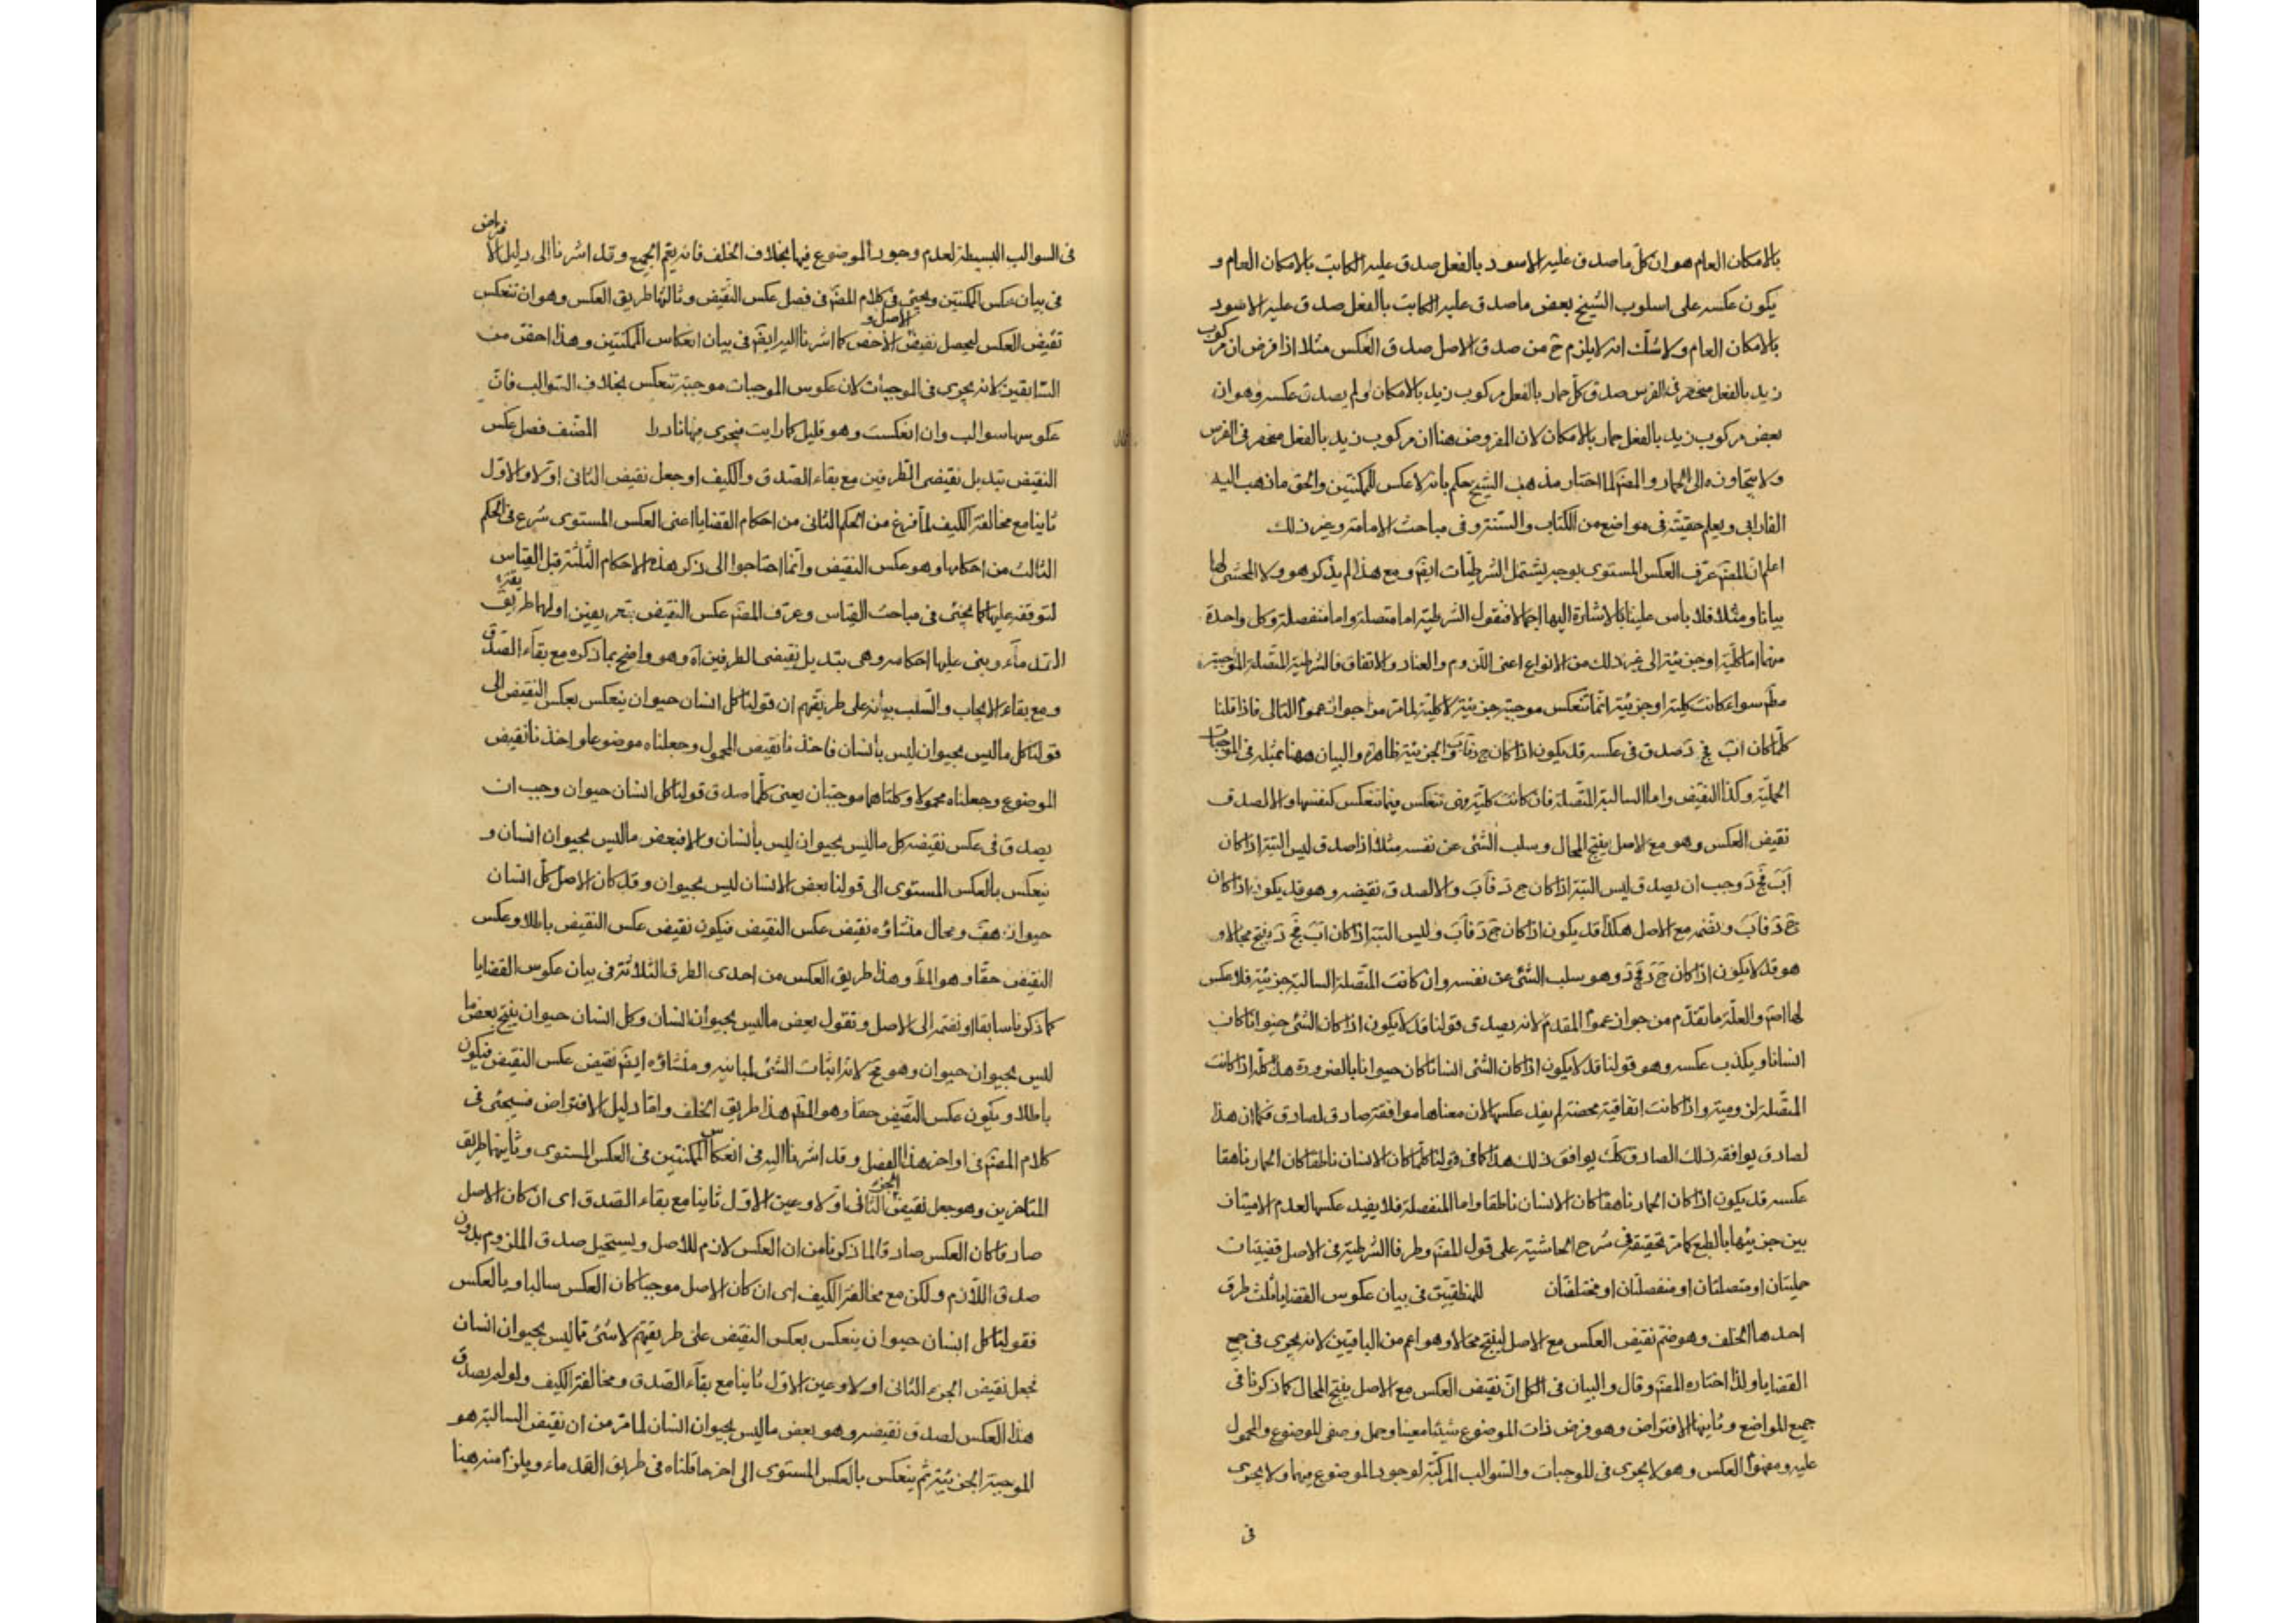 بالامكان العام هو ان كل ما صدق عليه الاسود بالفعل صدق عليه الكاتب بالامكان العام و
يكون عكسه على اسلوب الشيخ بعض ما صدق عليه الكاتب بالفعل صدق عليه الاسود
بالامكان العام ولا شك انه لا يلزم ح من صدق الاصل صدق العكس مثلا اذا فرض ان مركوب
زيد بالفعل منحصر فى الفرس صدق كل حمار بالفعل مركوب زيد بالامكان ولم يصدق عكسه وهو ان
بعض مركوب زيد بالفعل حمار بالامكان لان المفروض هنا ان مركوب زيد بالفعل منحصر فى الفرس
ولا يتجاوزه الى الحمار والمصنف لما اختار مذهب الشيخ حكم بانه لا عكس للممكنتين والحق ما ذهب اليه
الفارابى ويعلم حقيته فى مواضع من الكتاب والسنة وفى مباحث الامامة وغير ذلك
اعلم ان المصنف عرف العكس المستوى بوجه يشتمل الشرطيات ايضا ومع هذا لم يذكر هو ولا المحشى لها
بيانا ومثلا فلا باس علينا بالاشارة اليها اجمالا فنقول الشرطية اما متصلة واما منفصلة وكل واحدة
منهما اما كلية او جزئية الى غير ذلك من الانواع اعنى اللزوم والعناد والاتفاق فالشرطية المتصلة الموجبة
مطلقا سواء كانت كلية او جزئية انما تنعكس موجبة جزئية لا كلية لما مر من جواز عموم التالى فاذا قلنا
كلما كان اب فج د صدق فى عكسه قد يكون اذا كان ج د فاب والجزئية ظاهرة والبيان ههنا بمثله فى الموجبات
الحملية وكذا النقيض واما السالبة المتصلة فان كانت كلية وهى تنعكس فيما تنعكس كنفسها والا لصدق
نقيض العكس وهو مع الاصل ينتج المحال وسلب الشئ عن نفسه مثلا اذا صدق ليس البتة اذا كان
اب فج د وجب ان يصدق ليس البتة اذا كان ج د فاب والا لصدق نقيضه وهو قد يكون اذا كان
ج د فاب ونضمه مع الاصل هكذا قد يكون اذا كان ج د فاب وليس البتة اذا كان اب فج د ينتج محالا و
هو قد لا يكون اذا كان ج د فج د وهو سلب الشئ عن نفسه وان كانت المتصلة السالبة جزئية فلا عكس
لها اصلا والعلة ما تقدم من جواز عموم المقدم لانه يصدق قولنا قد لا يكون اذا كان الشئ حيوانا كان
انسانا ويكذب عكسه وهو قولنا قد لا يكون اذا كان الشئ انسانا كان حيوانا بالضرورة هذا كله اذا كانت
المتصلة لزومية واذا كانت اتفاقية محضة لم يفد عكسها لان معناها موافقة صادق لصادق فكما ان هذا
لصادق يوافقه ذلك الصادق كك يوافق ذلك هذا كما فى قولنا كلما كان الانسان ناطقا كان الحمار ناهقا
عكسه قد يكون اذا كان الحمار ناهقا كان الانسان ناطقا واما المنفصلة فلا يفيد عكسها لعدم الامتياز
بين جزئيها بالطبع كما مر تحقيقه فى شرح الحاشية على قول المصنف وطرفا الشرطية فى الاصل قضيتان
حمليتان او متصلتان او منفصلتان او مختلفتان للمنطقيين فى بيان عكوس القضايا ثلث طرق
احدها الخلف وهو ضم نقيض العكس مع الاصل لينتج محالا وهو اعم من الباقيين لانه يجرى فى جميع
القضايا ولذا اختاره المصنف وقال والبيان فى الكل ان نقيض العكس مع الاصل ينتج المحال كما ذكرنا فى
جميع المواضع وثانيها الافتراض وهو فرض ذات الموضوع شيئا معينا وحمل وصفى الموضوع والمحمول
عليه ومفهوم العكس وهو لا يجرى فى الموجبات والسوالب المركبة لوجود الموضوع فيهما ولا يجرى
فى
فى السوالب البسيطة لعدم وجود الموضوع فيها بخلاف الخلف فانه يعم الجميع وقد اشرنا الى دليل الافتراض
فى بيان عكس الممكنتين ويجئ فى كلام المصنف فى فصل عكس النقيض وثالثها طريق العكس وهو ان تنعكس
نقيض العكس ليحصل نقيض الاصل او الاخص كما اشرنا اليه ايضا فى بيان انعكاس الممكنتين وهذا اخص من
السابقين لانه يجرى فى الموجبات لان عكوس الموجبات موجبة تنعكس بخلاف السوالب فان
عكوسها سوالب وان انعكست وهو قليل كما رايت فيجرى فيها نادرا المصنف فصل عكس
النقيض تبديل نقيضى الطرفين مع بقاء الصدق والكيف او جعل نقيض الثانى اولا والاول
ثانيا مع مخالفة الكيف لما فرغ من الحكم الثانى من احكام القضايا اعنى العكس المستوى شرع فى الحكم
الثالث من احكامها وهو عكس النقيض وانما احتاجوا الى ذكر هذه الاحكام الثلثة قبل القياس
لتوقفه عليها كما يجئ فى مباحث القياس وعرف المصنف عكس النقيض بتعريفين اولهما طريقة
القدماء وبنى عليها احكامه وهى تبديل نقيضى الطرفين اه وهو واضح بما ذكره مع بقاء الصدق
ومع بقاء الايجاب والسلب بيانه على طريقتهم ان قولنا كل انسان حيوان ينعكس بعكس النقيض الى
قولنا كل ما ليس بحيوان ليس بانسان فاخذنا نقيض المحمول وجعلناه موضوعا واخذنا نقيض
الموضوع وجعلناه محمولا وكلتاهما موجبتان يعنى كلما صدق قولنا كل انسان حيوان وجب ان
يصدق فى عكس نقيضه كل ما ليس بحيوان ليس بانسان والا فبعض ما ليس بحيوان انسان و
ينعكس بالعكس المستوى الى قولنا بعض الانسان ليس بحيوان وقد كان الاصل كل انسان
حيوان هف ومحال منشاؤه نقيض عكس النقيض فيكون نقيض عكس النقيض باطلا وعكس
النقيض حقا وهو المط وهذا طريق العكس من احدى الطرق الثلاثة فى بيان عكوس القضايا
كما ذكرنا سابقا او نضمه الى الاصل ونقول بعض ما ليس بحيوان انسان وكل انسان حيوان ينتج بعض ما
ليس بحيوان حيوان وهو مح لانه اثبات الشئ لمباينه ومنشاؤه ايضا نقيض عكس النقيض فيكون
باطلا ويكون عكس النقيض حقا وهو المط هذا طريق الخلف واما دليل الافتراض فسيجئ فى
كلام المصنف فى اواخر هذا الفصل وقد اشرنا اليه فى انعكاس الممكنتين فى العكس المستوى وثانيهما طريق
المتاخرين وهو جعل نقيض الجزء الثانى اولا وعين الاول ثانيا مع بقاء الصدق اى ان كان الاصل
صادقا كان العكس صادقا لما ذكرنا من ان العكس لازم للاصل ويستحيل صدق الملزوم بدون
صدق اللازم ولكن مع مخالفة الكيف اى ان كان الاصل موجبا كان العكس سالبا وبالعكس
فقولنا كل انسان حيوان ينعكس بعكس النقيض على طريقتهم لا شئ مما ليس بحيوان انسان
نجعل نقيض الجزء الثانى اولا وعين الاول ثانيا مع بقاء الصدق ومخالفة الكيف ولو لم يصدق
هذا العكس لصدق نقيضه وهو بعض ما ليس بحيوان انسان لما مر من ان نقيض السالبة هو
الموجبة الجزئية ثم ينعكس بالعكس المستوى الى اخر ما قلناه فى طريق القدماء ويلزم منه هنا